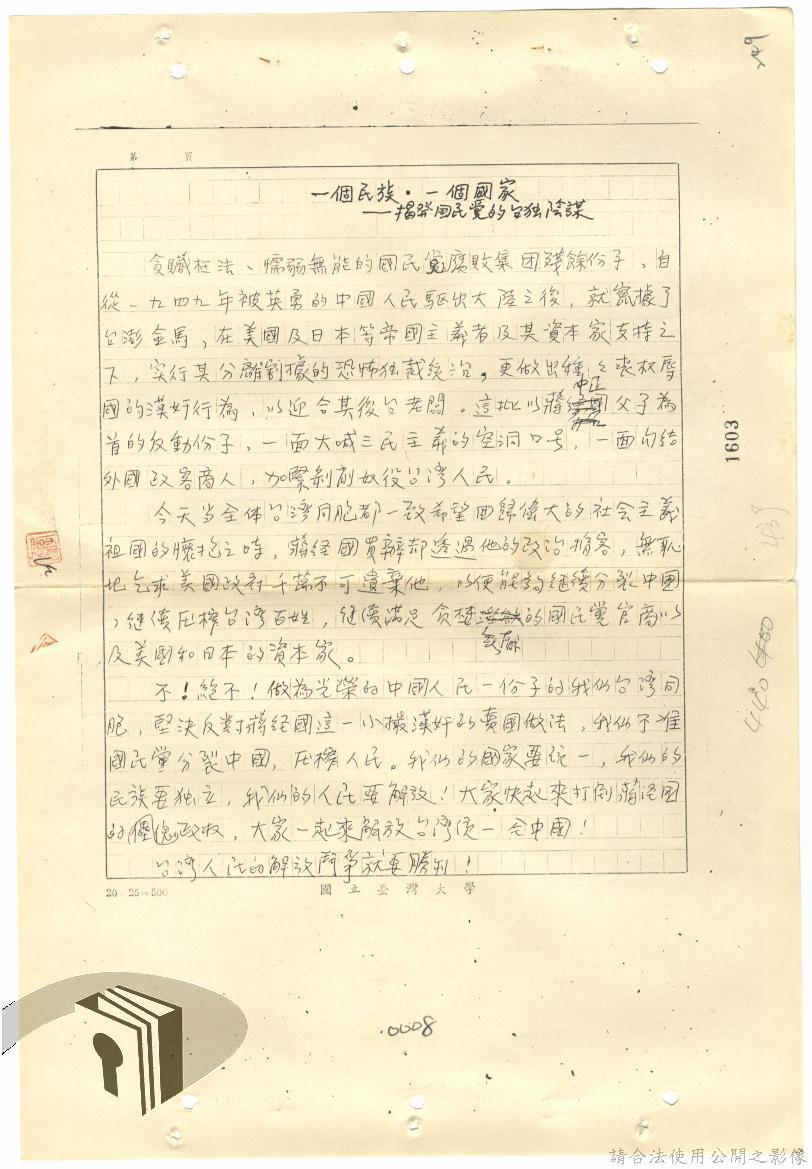 第　頁
一個民族・一個國家
——揭發国民党的台独陰謀
貪贓枉法、懦弱無能的國民党腐敗集团殘餘份子，自
從一九四九年被英勇的中國人民驅出大陸之後，就竄據了
台澎金馬，在美國及日本等帝國主義者及其資本家支持之
下，实行其分離割據的恐怖独裁統治，更做出種々喪权辱
國的漢奸行為，以迎合其後台老闆。這批以蔣中正父子為
首的反動份子，一面大喊三民主義的空洞口号，一面勾結
外國政客商人，加緊剝削奴役台湾人民。
今天当全体台湾同胞都一致希望回歸偉大的社会主義
祖國的懷抱之時，蔣経國買辦却透過他的政治掮客，無恥
地乞求美國政府千萬不可遺棄他，以便能夠继續分裂中國
，继續压榨台湾百姓，继續滿足貪婪的國民党官商以
及美國和日本的資本家。
不！絕不！做為光榮的中國人民一份子的我们台湾同
胞，堅決反對蔣経國這一小撮漢奸的賣國做法，我们不准
國民党分裂中國，压榨人民。我们的國家要統一，我们的
民族要独立，我们的人民要解放！大家快起來打倒蔣経国
的傀儡政权，大家一起來解放台湾統一全中國！
台湾人民的解放鬥爭就要勝利！
20×25=500
國立臺灣大學
1603
439
440
0008
請合法使用公開之影像